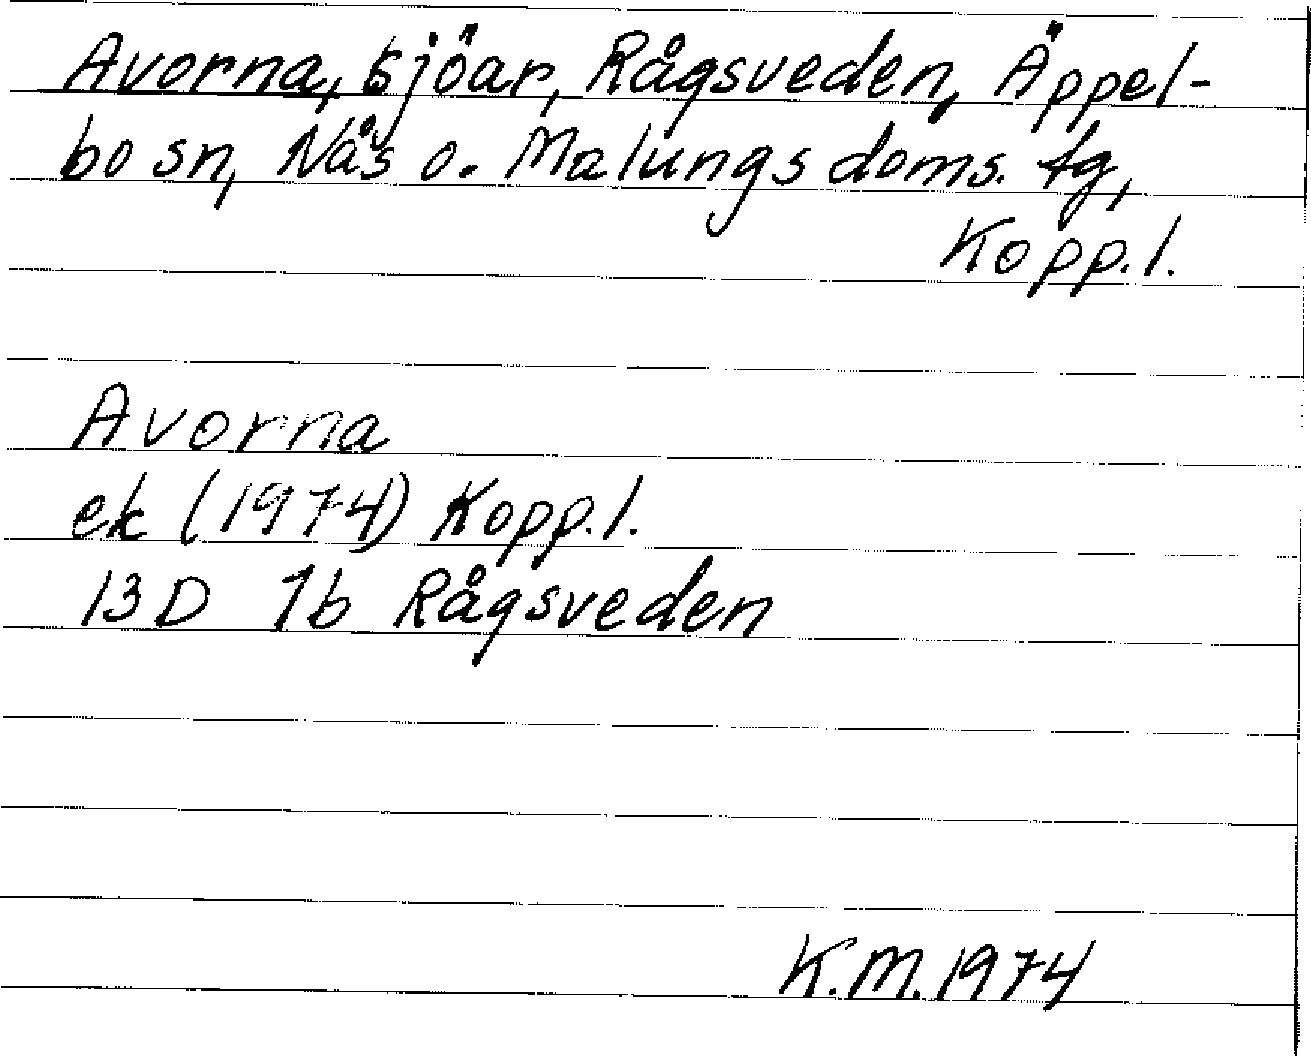 Avorna, sjöar, Rågsveden, Äppel-
bo sn, Nås o. Malungs doms. tg,
Kopp.l.
Avorna
ek (1974) Kopp.l.
13D 7b Rågsveden
K.M.1974